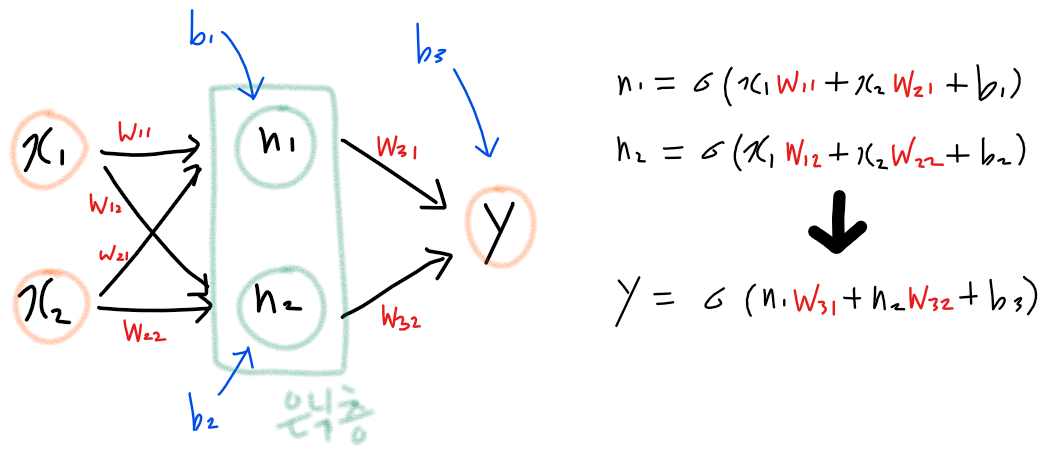 b₁
b₃
x₁
w₁₁
n₁
w₃₁
w₁₂
y
w₂₁
x₂
n₂
w₂₂
w₃₂
b₂
은닉층
n₁ = σ(x₁w₁₁+x₂w₂₁+b₁)
n₂ = σ(x₁w₁₂+x₂w₂₂+b₂)
y = σ(n₁w₃₁+n₂w₃₂+b₃)